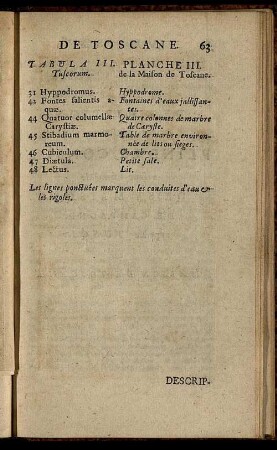 DE TOSCANE. 63
TABULA III. PLANCHE III.
Tuscorum. de la Maison de Toscane.
31 Hyppodromus. Hyppodrome.
42 Fontes salientis a- Fontaines d'eaux jallissan-
quæ. tes.
44 Quatuor columellæ Quatre colonnes de marbre
Carystiæ. de Caryste.
45 Stibadium marmo- Table de marbre environ-
reum. née de lits ou sieges.
46 Cubiculum. Chambre.
47 Diætula. Petite sale.
48 Lectus. Lit.
Les lignes ponctuées marquent les conduites d'eau &
les rigoles.
DESCRIP-